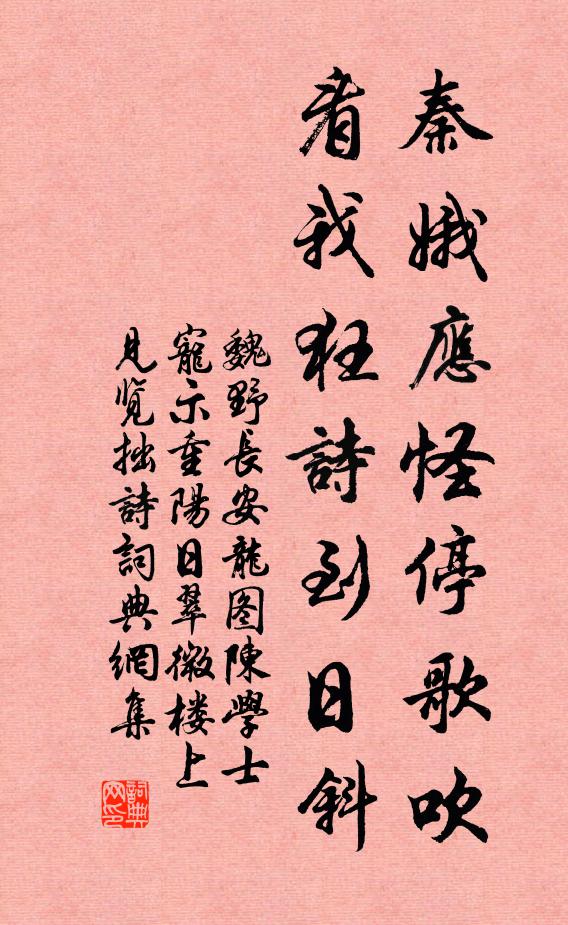 秦娥應怪停歌吹
看我狂詩到日斜
魏野長安龍图陳學士
寵示重陽日翠微楼上
見览拙詩詞典網集
詞典
网印